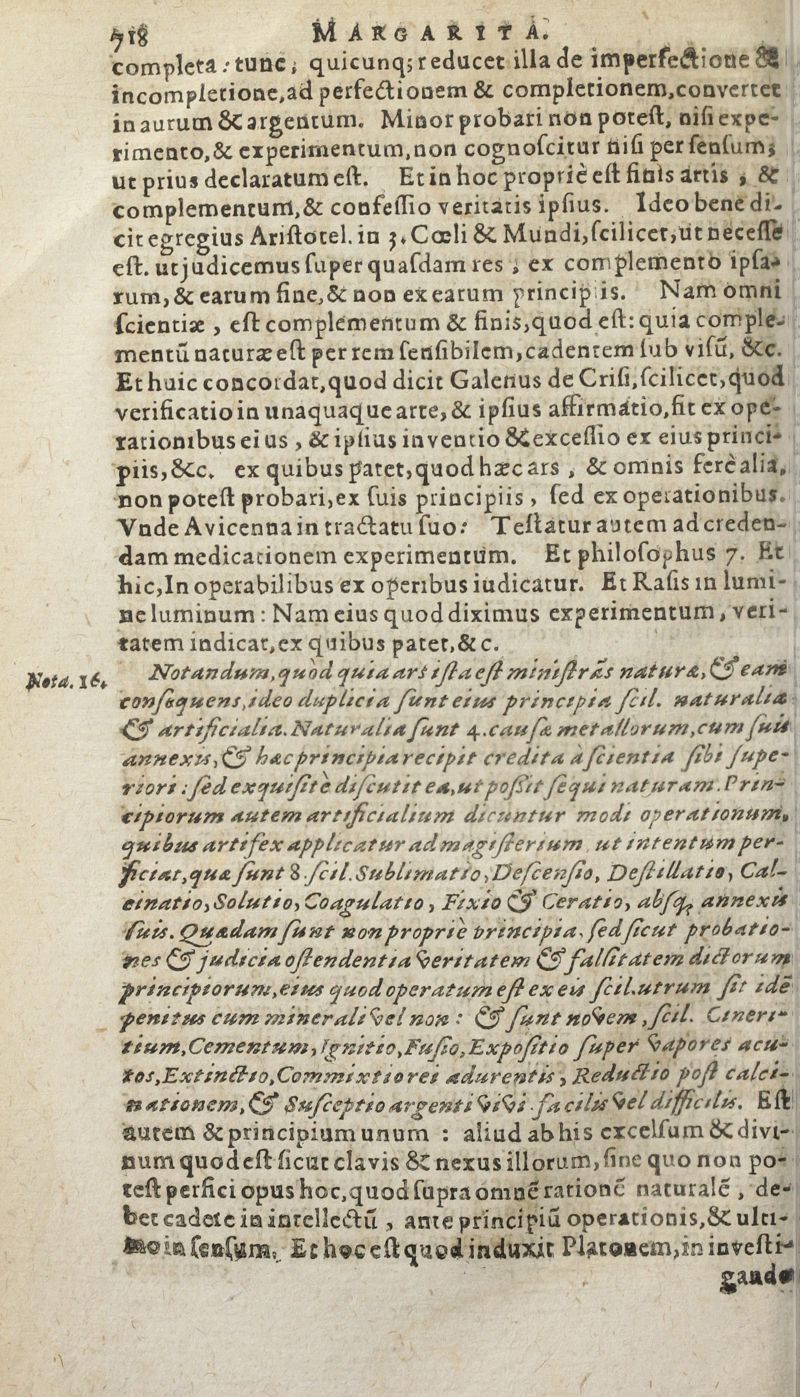 718 MARGARITA.
completa: tunc, quicunq; reducet illa de imperfectione &
incompletione, ad perfectionem & completionem, convertet
in aurum & argentum. Minor probari non potest, nisi expe-
rimento, & experimentum, non cognoscitur nisi per sensum;
ut prius declaratum est. Et in hoc propriè est finis artis, &
complementum, & confessio veritatis ipsius. Ideo bene di-
cit egregius Aristotel. in 3. Cœli & Mundi, scilicet, ut necesse
est. ut judicemus super quasdam res, ex complemento ipsa-
rum, & earum fine, & non ex earum principiis. Nam omni
scientiæ, est complementum & finis, quod est: quia comple-
mentū naturæ est per rem sensibilem, cadentem sub visū, &c.
Et huic concordat, quod dicit Galenus de Crisi, scilicet, quod
verificatio in unaquaque arte, & ipsius affirmatio, fit ex ope-
rationibus ei us, & ipsius inventio & excessio ex eius princi-
piis, &c. ex quibus patet, quod hæc ars, & omnis ferè alia,
non potest probari, ex suis principiis, sed ex operationibus.
Vnde Avicenna in tractatu suo: Testatur autem ad creden-
dam medicationem experimentum. Et philosophus 7. Et
hic, In operabilibus ex operibus iudicatur. Et Rasis in lumi-
ne luminum: Nam eius quod diximus experimentum, veri-
tatem indicat, ex quibus patet, &c.
Nota. 16. Notandum, quod quia ars ista est ministrās naturæ, & eam
consequens, ideo duplicia sunt eius principia scil. naturalia
& artificialia. Naturalia sunt 4. causæ metallorum, cum suis
annexis, & hæc principia recipit credita à scientia sibi supe-
riori: sed exquisitè discutit ea, ut possit sequi naturam. Prin-
cipiorum autem artificialium dicuntur modi operationum,
quibus artifex applicatur ad magisterium, ut intentum per-
ficiat, quæ sunt 8. scil. Sublimatio, Descensio, Destillatio, Cal-
cinatio, Solutio, Coagulatio, Fixio & Ceratio, absq; annexis
suis. Quædam sunt non proprie principia, sed sicut probatio-
nes & judicia ostendentia veritatem & falsitatem dictorum
principiorum, eius quod operatum est ex eis scil. utrum sit idē
penitus cum minerali vel non: & sunt novem, scil. Cineri-
tium, Cementum, Ignitio, Fusio, Expositio super vapores acu-
tos, Extinctio, Commixtio rei adurentis, Reductio post calci-
nationem, & Susceptio argenti vivi facilis vel difficilis. Est
autem & principium unum: aliud ab his excelsum & divi-
num quod est sicut clavis & nexus illorum, sine quo non po-
test perfici opus hoc, quod supra omnē rationē naturalē, de-
bet cadere in intellectū, ante principiū operationis, & ulti-
mo in sensum. Et hoc est quod induxit Platonem, in investi-
gando